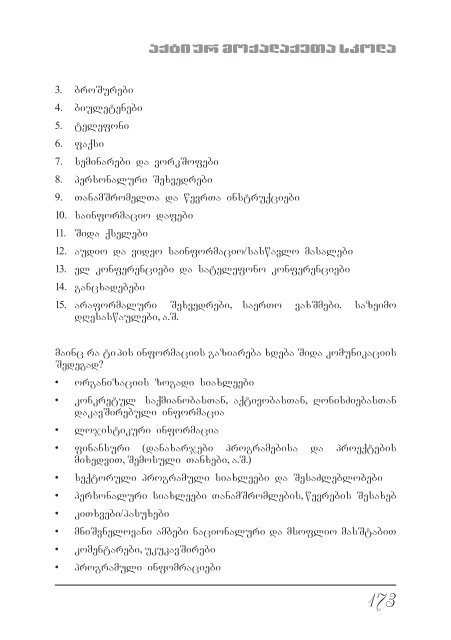 აქტიურ მოქალაქეთა სკოლა
3. ბროშურები
4. ბიულეტენები
5. ტელეფონი
6. ფაქსი
7. სემინარები და ვორკშოფები
8. პერსონალური შეხვედრები
9. თანამშრომელთა და წევრთა ინსტრუქციები
10. საინფორმაციო დაფები
11. შიდა ქსელები
12. აუდიო და ვიდეო საინფორმაციო/სასწავლო მასალები
13. ელ კონფერენციები და სატელეფონო კონფერენციები
14. განცხადებები
15. არაფორმალური შეხვედრები, საერთო ვახშმები. საზეიმო
დღესასწაულები, ა.შ.
მაინც რა ტიპის ინფორმაციის გაზიარება ხდება შიდა კომუნიკაციის
შედეგად?
• ორგანიზაციის ზოგადი სიახლეები
• კონკრეტულ საქმიანობასთან, აქტივობასთან, ღონისძიებასთან
დაკავშირებული ინფორმაცია
• ლოჯისტიკური ინფორმაცია
• ფინანსური (დანახარჯები პროგრამებისა და პროექტების
მიხედვით, შემოსული თანხები, ა.შ.)
• სექტორული პროგრამული სიახლეები და შესაძლებლობები
• პერსონალური სიახლეები თანამშრომლების, წევრების შესახებ
• კითხვები/პასუხები
• მნიშვნელოვანი ამბები ნაციონალური და მსოფლიო მასშტაბით
• კომენტარები, უკუკავშირები
• პროგრამული ინფომრაციები
173